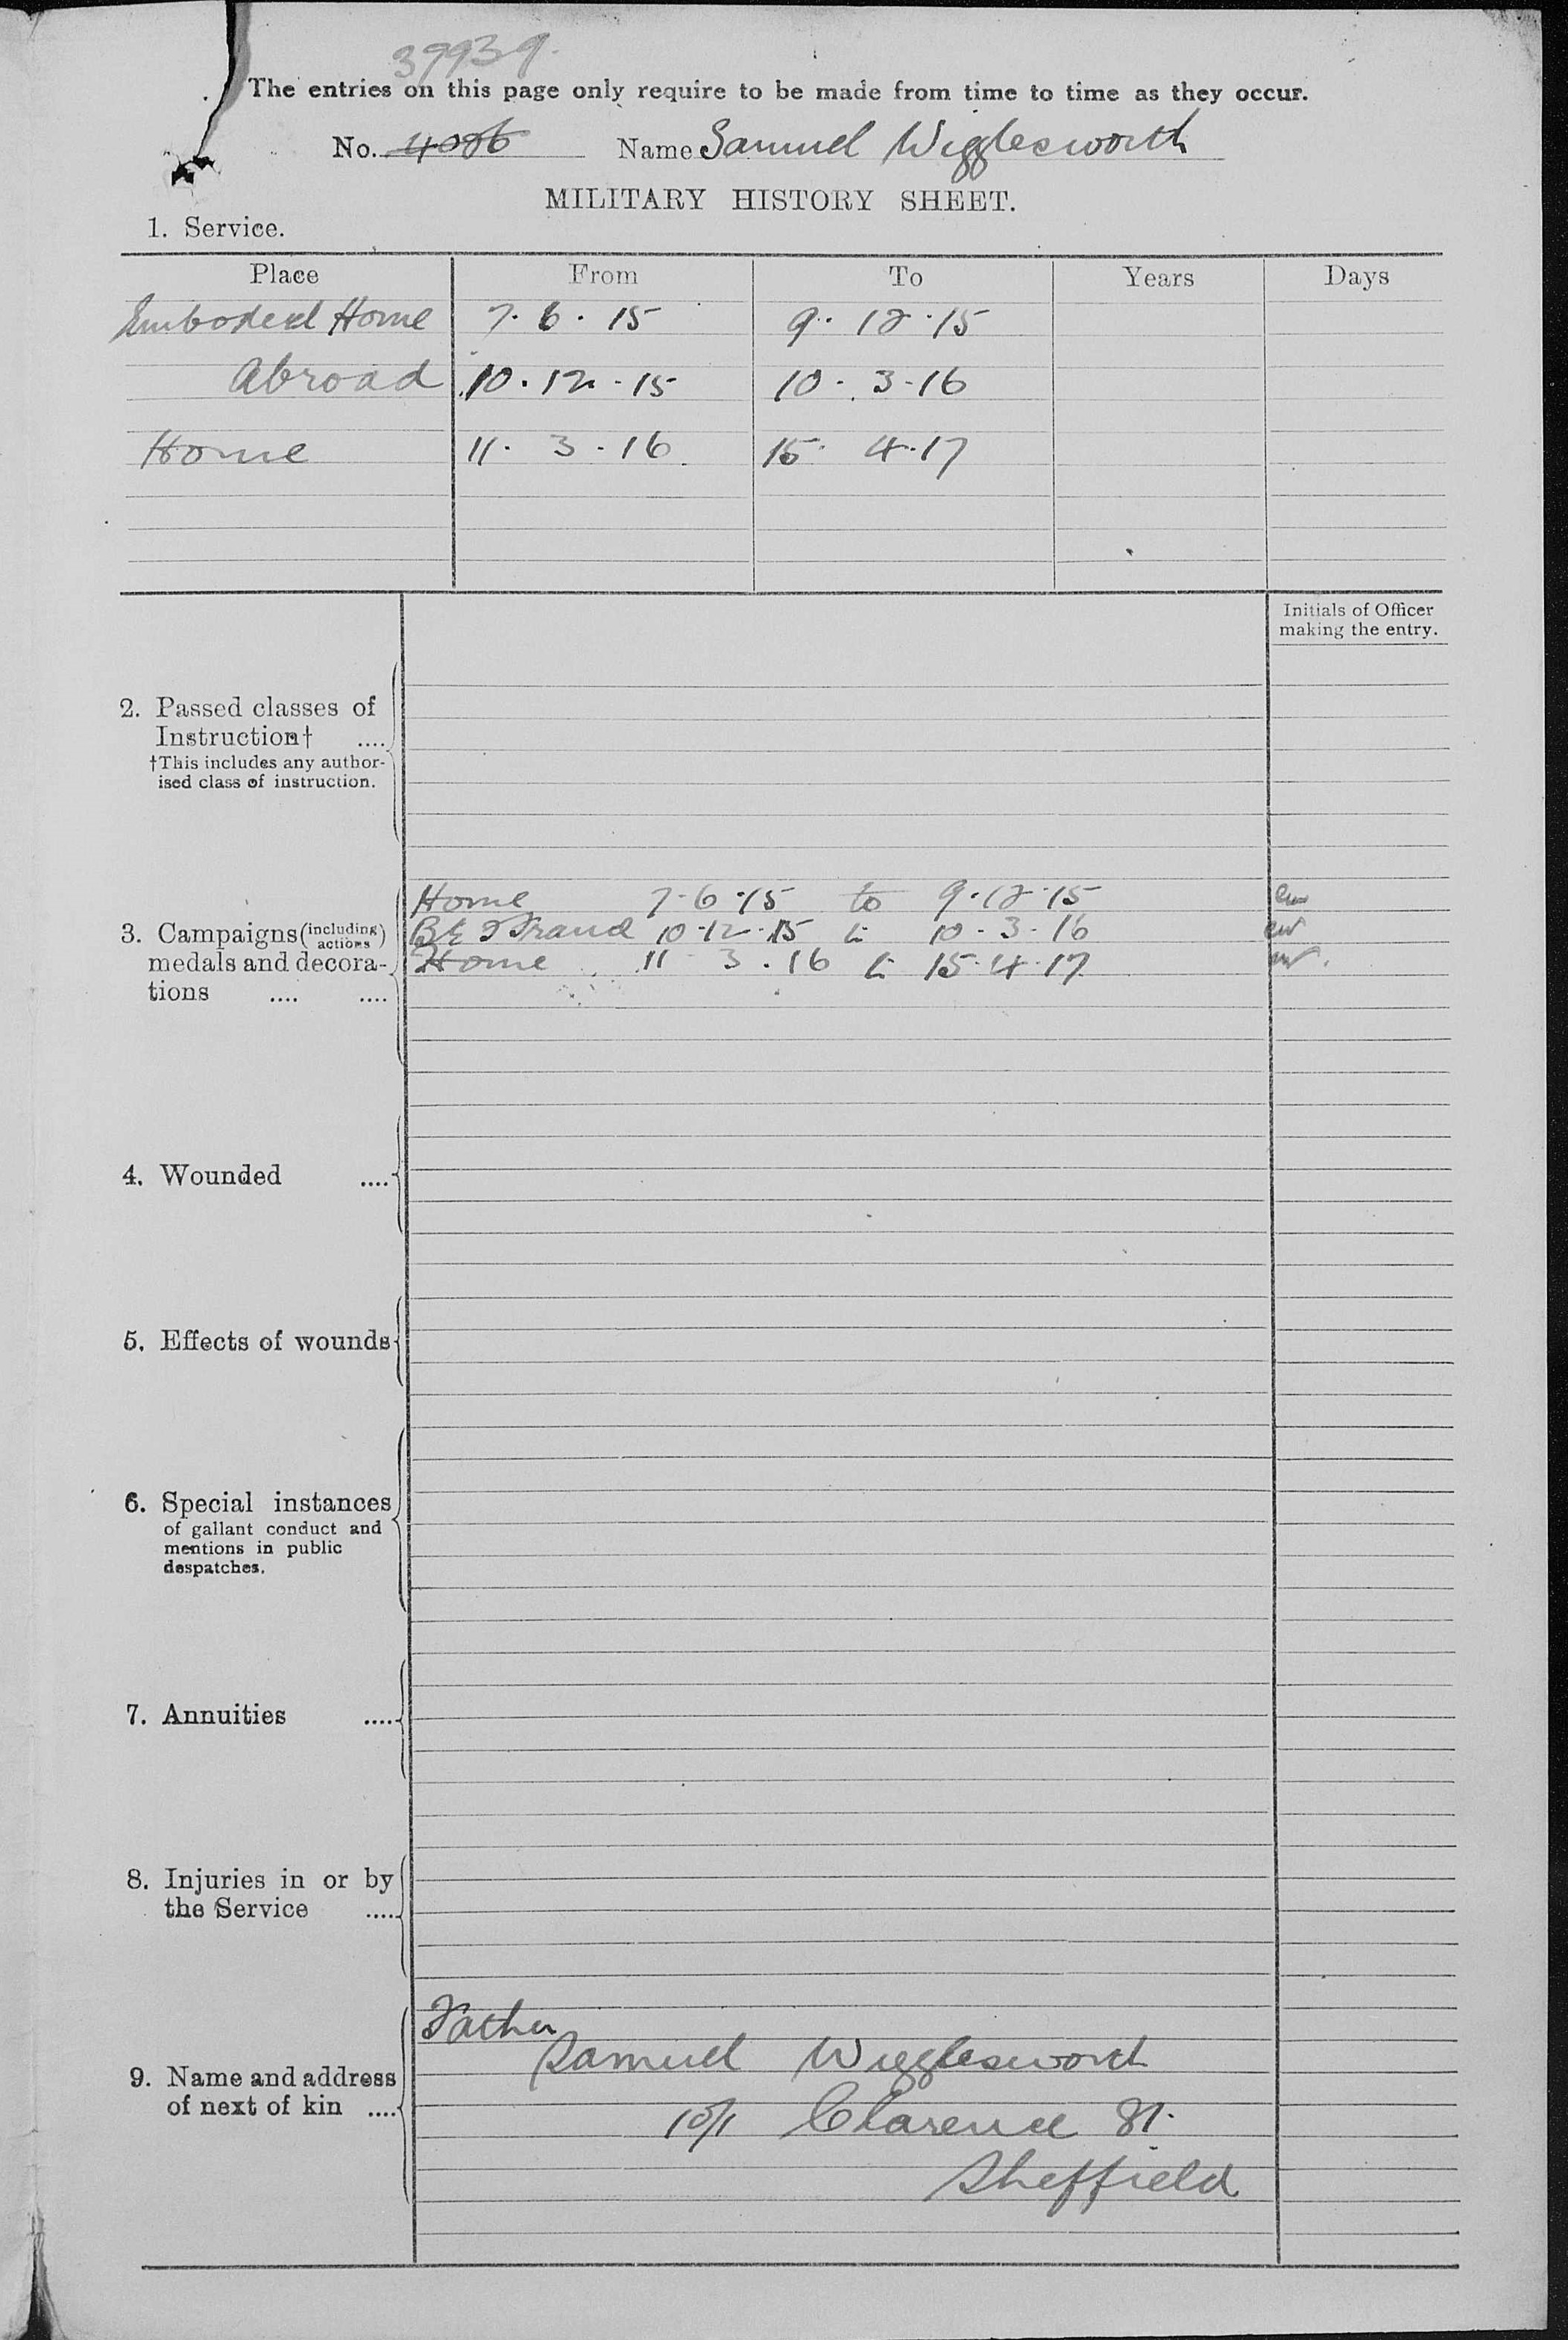 39939.
The entries on this page only require to be made from time to time as they occur.
No. 4086 Name Samuel Wigglesworth
MILITARY HISTORY SHEET.
1. Service.
Place From To Years Days
Embodied Home 7.6.15 9.12.15
Abroad 10.12.15 10.3.16
Home 11.3.16. 15.4.17
Initials of Officer
making the entry.
2. Passed classes of
Instruction† ....
†This includes any author-
ised class of instruction.
Home 7.6.15 to 9.12.15
3. Campaigns (including actions) 10.12.15 to 10.3.16
medals and decora- Home 11 3.16 to 15.4.17
tions .... ....
4. Wounded ....
5. Effects of wounds
6. Special instances
of gallant conduct and
mentions in public
despatches.
7. Annuities ....
8. Injuries in or by
the Service ....
Father
Samuel Wigglesworth
9. Name and address
of next of kin .... Clarence St.
Sheffield